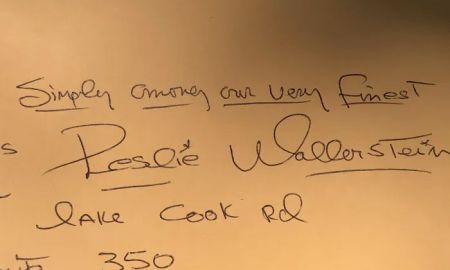 Simply among our very finest
s Leslie Wallerstein
lake Cook Rd
350